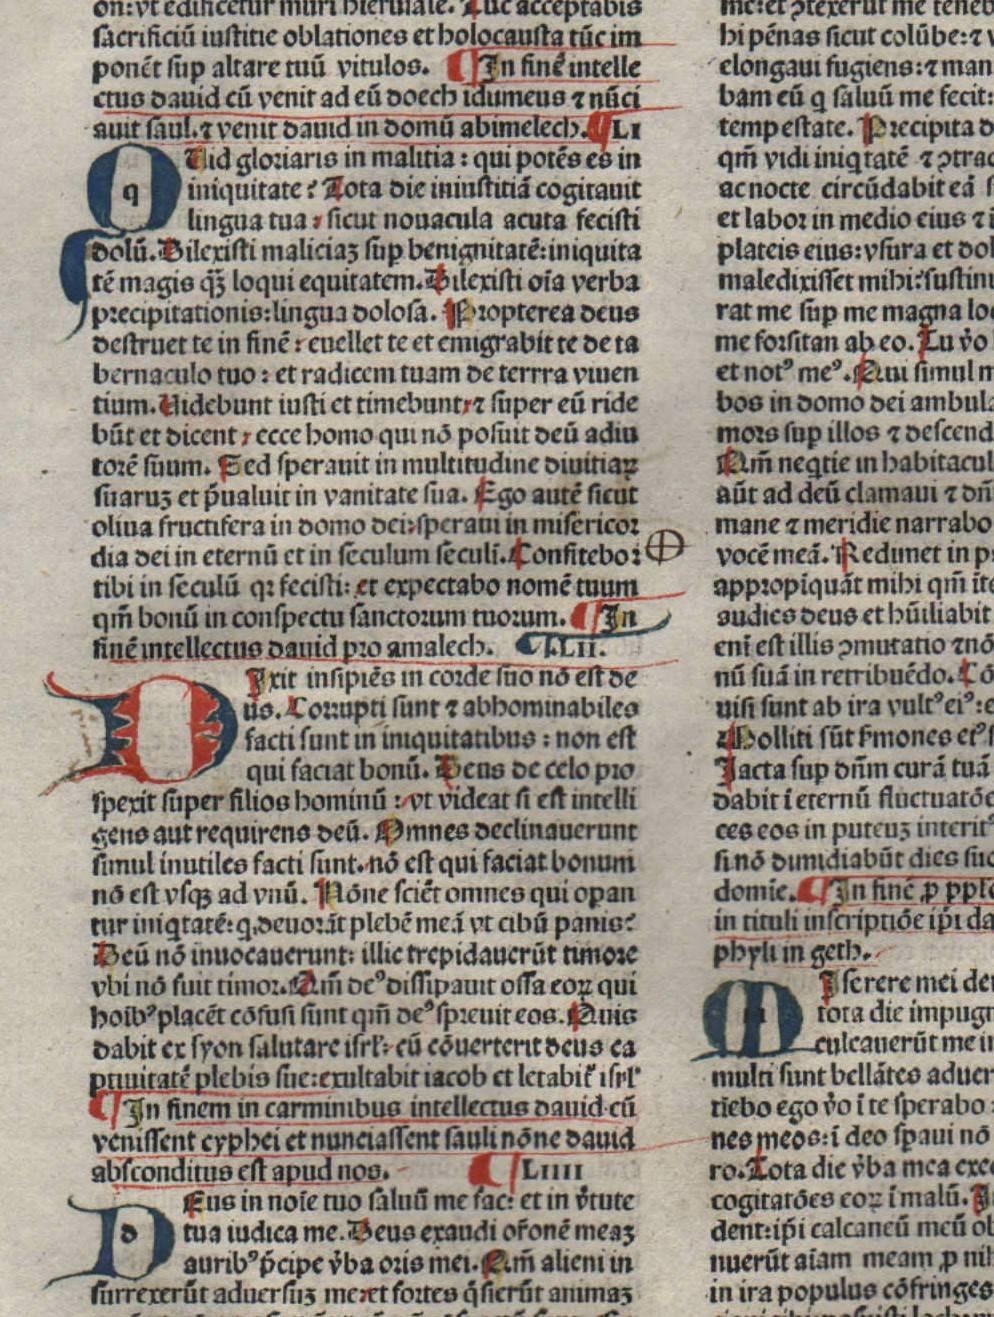 on:vt edificetur muri hierusalē. Tuc acceptabis
sacrificiū iustitie oblationes et holocausta tūc im
ponēt sup altare tuū vitulos. ¶In finē intelle
ctus dauid cū venit ad eū doech idumeus ⁊ nūci
auit saul.⁊ venit dauid in domū abimelech. ¶LI
QUid gloriaris in malitia : qui potēs es in
iniquitate? Tota die iniustitiā cogitauit
lingua tua: sicut nouacula acuta fecisti
dolū. Dilexisti maliciaꝫ sup benignitatē: iniquita
tē magis qꝫ̄ loqui equitatem. Dilexisti oīa verba
precipitationis: lingua dolosa. Propterea deus
destruet te in finē: euellet te et emigrabit te de ta
bernaculo tuo : et radicem tuam de terrra viuen
tium. Uidebunt iusti et timebunt: ⁊ super eū ride
būt et dicent: ecce homo qui nō posuit deū adiu
torē suum. Sed sperauit in multitudine diuitiaꝝ
suaruꝫ et p̄ualuit in vanitate sua. Ego autē sicut
oliua fructifera in domo dei: speraui in misericor
dia dei in eternū et in seculum seculi. Confitebor
tibi in seculū qꝛ fecisti: et expectabo nomē tuum
qm̄ bonū in conspectu sanctorum tuorum. ¶In
finē intellectus dauid pro amalech. ¶LII.
DIxit insipiēs in corde suo nō est de
us. Corrupti sunt ⁊ abhominabiles
facti sunt in iniquitatibus : non est
qui faciat bonū. Deus de celo pro
spexit super filios hominū : vt videat si est intelli
gens aut requirens deū. Omnes declinauerunt
simul inutiles facti sunt. nō est qui faciat bonum
nō est vsqꝫ ad vnū. Nōne sciēt omnes qui opan
tur iniqtatē: q deuorāt plebē meā vt cibū panis?
Deū nō inuocauerunt: illic trepidauerūt timore
vbi nō fuit timor. Qm̄ deꝰ dissipauit ossa eoꝝ qui
hoibꝰ placēt cōfusi sunt qm̄ deꝰ spreuit eos. Quis
dabit ex syon salutare isrl̄: cū cōuerterit deus ca
ptiuitatē plebis sue: exultabit iacob et letabit̄ isrl̄
¶In finem in carminibus intellectus dauid cū
venissent cyphei et nunciassent sauli nōne dauid
absconditus est apud nos. ¶LIIII
DEus in noīe tuo saluū me fac: et in v̄tute
tua iudica me. Deus exaudi or̄onē meaꝫ
auribꝰ p̄cipe v̄ba oris mei. Qm̄ alieni in
surrexerūt aduersuꝫ me: et fortes q̄sierūt animaꝫ
me: et ꝯtexerūt me teneb
hi pēnas sicut colūbe: ⁊ v
elongaui fugiens: ⁊ man
bam eū q saluū me fecit:
tempestate. Precipita d
qm̄ vidi iniqtatē ⁊ ꝯtrac
ac nocte circūdabit eā s
et labor in medio eius ⁊ i
plateis eius: vsura et dol
maledixisset mihi: sustinu
rat me sup me magna loc
me forsitan ab eo. Tu v̄o
et notꝰ meꝰ. Qui simul m
bos in domo dei ambula
mors sup illos ⁊ descend
Qm̄ neqtie in habitacul
aūt ad deū clamaui ⁊ dn̄
mane ⁊ meridie narrabo
vocē meā. Redimet in p
appropīquāt mihi qm̄ īte
audiet deus et hūiliabit
eni est illis ꝯmutatio ⁊nō
nū suā in retribuēdo. Cō
uisi sunt ab ira vultꝰ eiꝰ: e
Molliti sūt s̄mones eiꝰ s
Iacta sup dn̄m curā tuā
dabit ī eternū fluctuatōē
ces eos in puteuꝫ interitꝰ
si nō dimidiabūt dies suo
domie. ¶In finē ꝓ pplo
in tituli inscriptiōe ip̄i da
phyli in geth.
MIserere mei deu
tota die impugn
culcauerūt me in
multi sunt bellātes aduer
tiebo ego v̄o ī te sperabo :
nes meos: ī deo spaui nō
ro. Tota die v̄ba mea exec
cogitatōes eoꝝ ī malū. In
dent: ip̄i calcaneū meū ob
nuerūt aīam meam ꝓ nih
in ira populus cōfringes